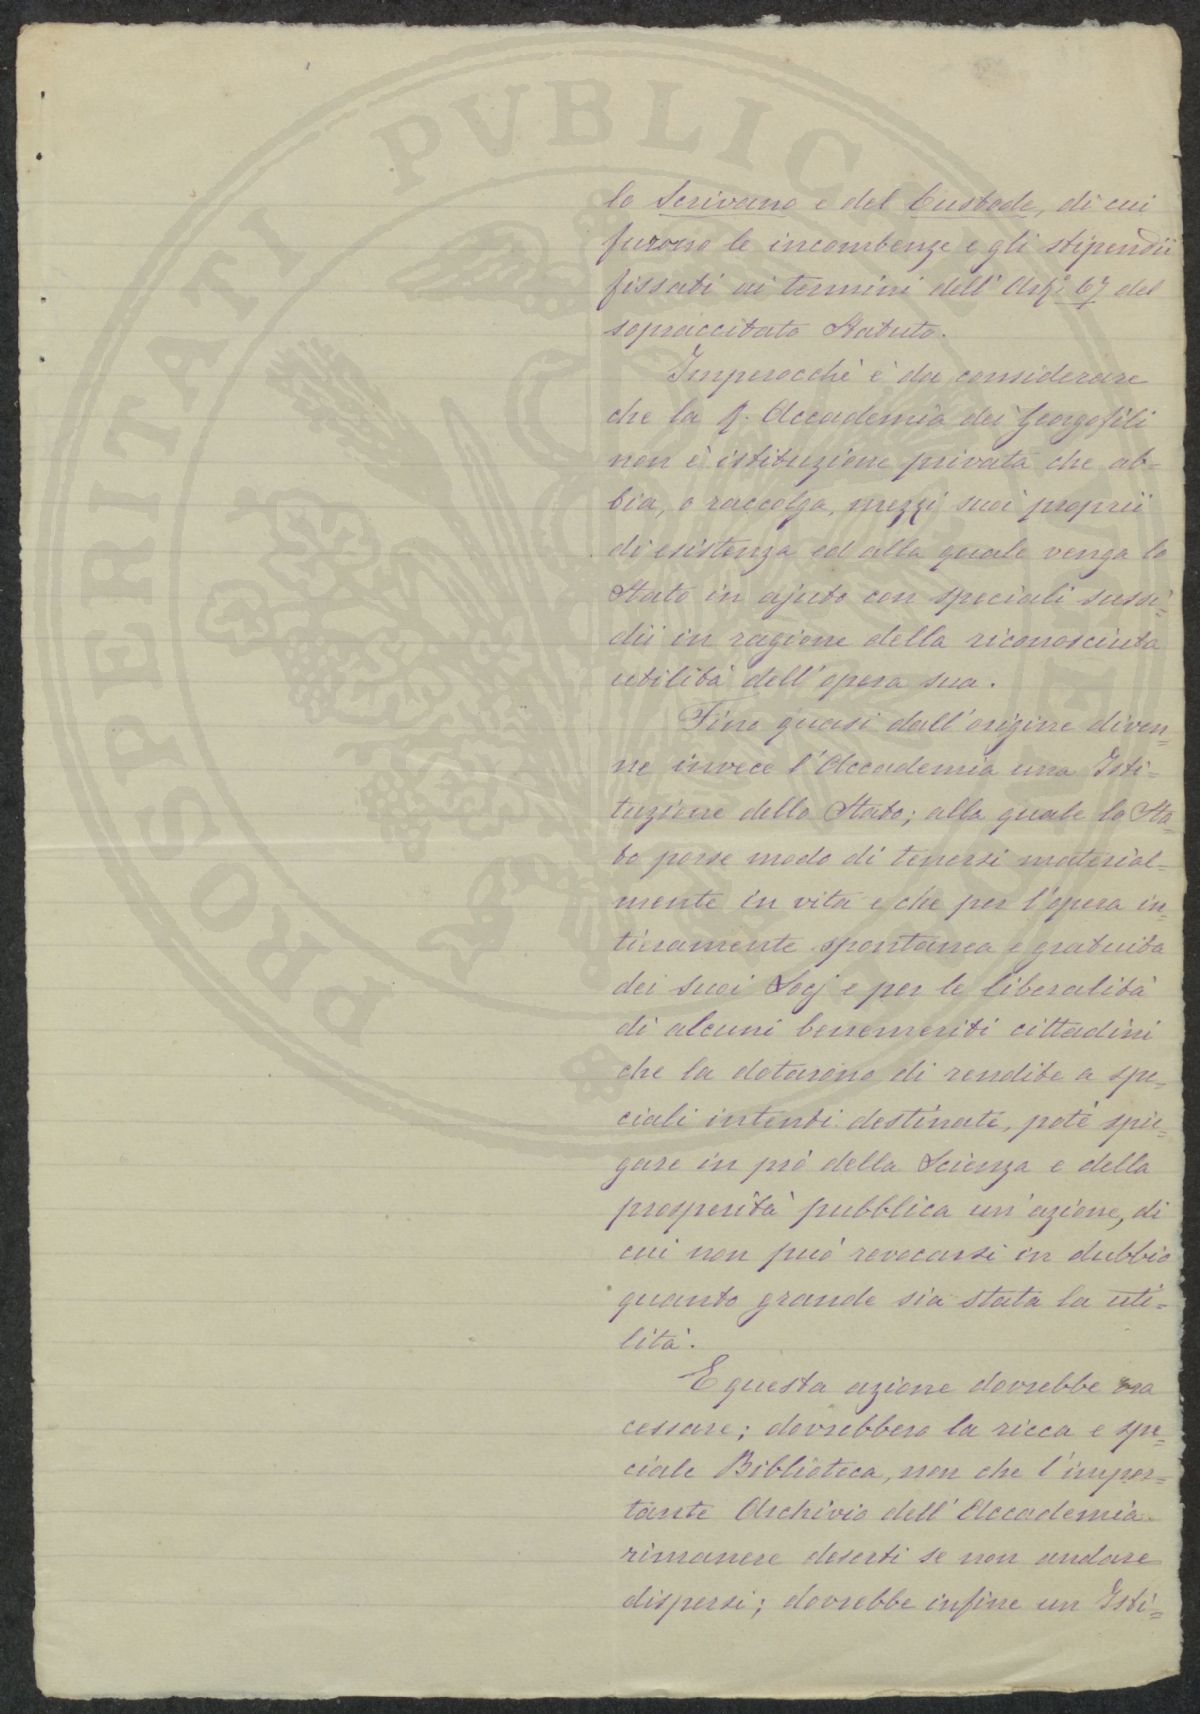 PROSPERITATI PUBLICAE
lo Scrivano e del Custode, di cui
furono le incombenze e gli stipendii
fissati ai termini dell' Art.º 67 del
sopraccitato Statuto.
Imperocchè è da considerare
che la R. Accademia dei Georgofili
non è istituzione privata che ab=
bia, o raccolga, mezzi suoi proprii
di esistenza ed alla quale venga lo
Stato in ajuto con speciali sussi=
dii in ragione della riconosciuta
utilità dell'opera sua.
Fino quasi dall'origine diven=
ne invece l'Accademia una Isti=
tuzione dello Stato; alla quale lo Sta=
to porse modo di tenersi material=
mente in vita e che per l'opera in=
tieramente spontanea e gratuita
dei suoi Socj e per le liberalità
di alcuni benemeriti cittadini
che la dotarono di rendite a spe=
ciali intenti destinate, potè spie=
gare in prò della Scienza e della
prosperità pubblica un'azione, di
cui non può revocarsi in dubbio
quanto grande sia stata la uti=
lità.
E questa azione dovrebbe ora
cessare; dovrebbero la ricca e spe=
ciale Biblioteca, non che l'impor=
tante Archivio dell'Accademia
rimanere deserti se non andare
dispersi; dovrebbe infine un Isti=